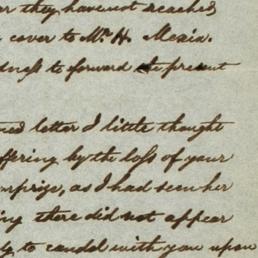 they have not reached
cover to Mr. H. Mexia.
to forward the present
letter I little thought
by the loss of your
as I had seen her
there did not appear
to candol with you upon